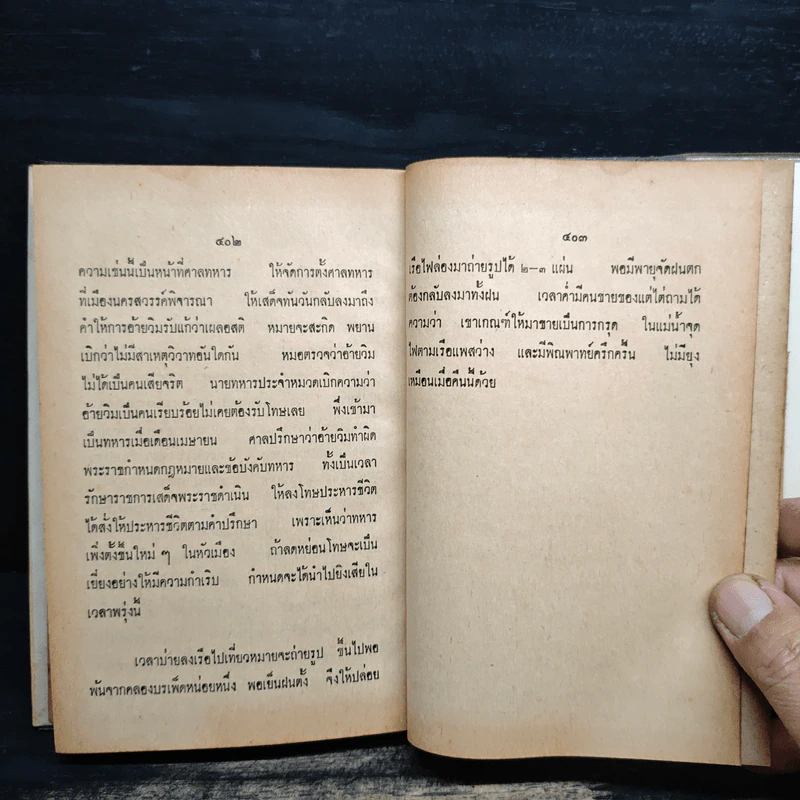 ๔๐๒
ความเช่นนี้เป็นหน้าที่ศาลทหาร ให้จัดการตั้งศาลทหาร
ที่เมืองนครสวรรค์พิจารณา ให้เสด็จทันวันกลับลงมาถึง
คำให้การอ้ายวิมรับแก้ว่าเผลอสติ หมายจะสะกิด พยาน
เบิกว่าไม่มีสาเหตุวิวาทอันใดกัน หมอตรวจว่าอ้ายวิม
ไม่ได้เป็นคนเสียจริต นายทหารประจำหมวดเบิกความว่า
อ้ายวิมเป็นคนเรียบร้อยไม่เคยต้องรับโทษเลย พึ่งเข้ามา
เป็นทหารเมื่อเดือนเมษายน ศาลปรึกษาว่าอ้ายวิมทำผิด
พระราชกำหนดกฎหมายและข้อบังคับทหาร ทั้งเป็นเวลา
รักษาราชการเสด็จพระราชดำเนิน ให้ลงโทษประหารชีวิต
ได้สั่งให้ประหารชีวิตตามคำปรึกษา เพราะเห็นว่าทหาร
เพิ่งตั้งขึ้นใหม่ ๆ ในหัวเมือง ถ้าลดหย่อนโทษจะเป็น
เยี่ยงอย่างให้มีความกำเริบ กำหนดจะได้นำไปยิงเสียใน
เวลาพรุ่งนี้
เวลาบ่ายลงเรือไปเที่ยวหมายจะถ่ายรูป ขึ้นไปพอ
พ้นจากคลองบรเพ็ดหน่อยหนึ่ง พอเย็นฝนตั้ง จึงให้ปล่อย
๔๐๓
เรือไฟล่องมาถ่ายรูปได้ ๒-๓ แผ่น พอมีพายุจัดฝนตก
ต้องกลับลงมาทั้งฝน เวลาค่ำมีคนขายของแต่ไต่ถามได้
ความว่า เขาเกณฑ์ให้มาขายเป็นการกรุด ในแม่น้ำจุด
ไฟตามเรือแพสว่าง และมีพิณพาทย์ครึกครื้น ไม่มียุง
เหมือนเมื่อคืนนี้ด้วย